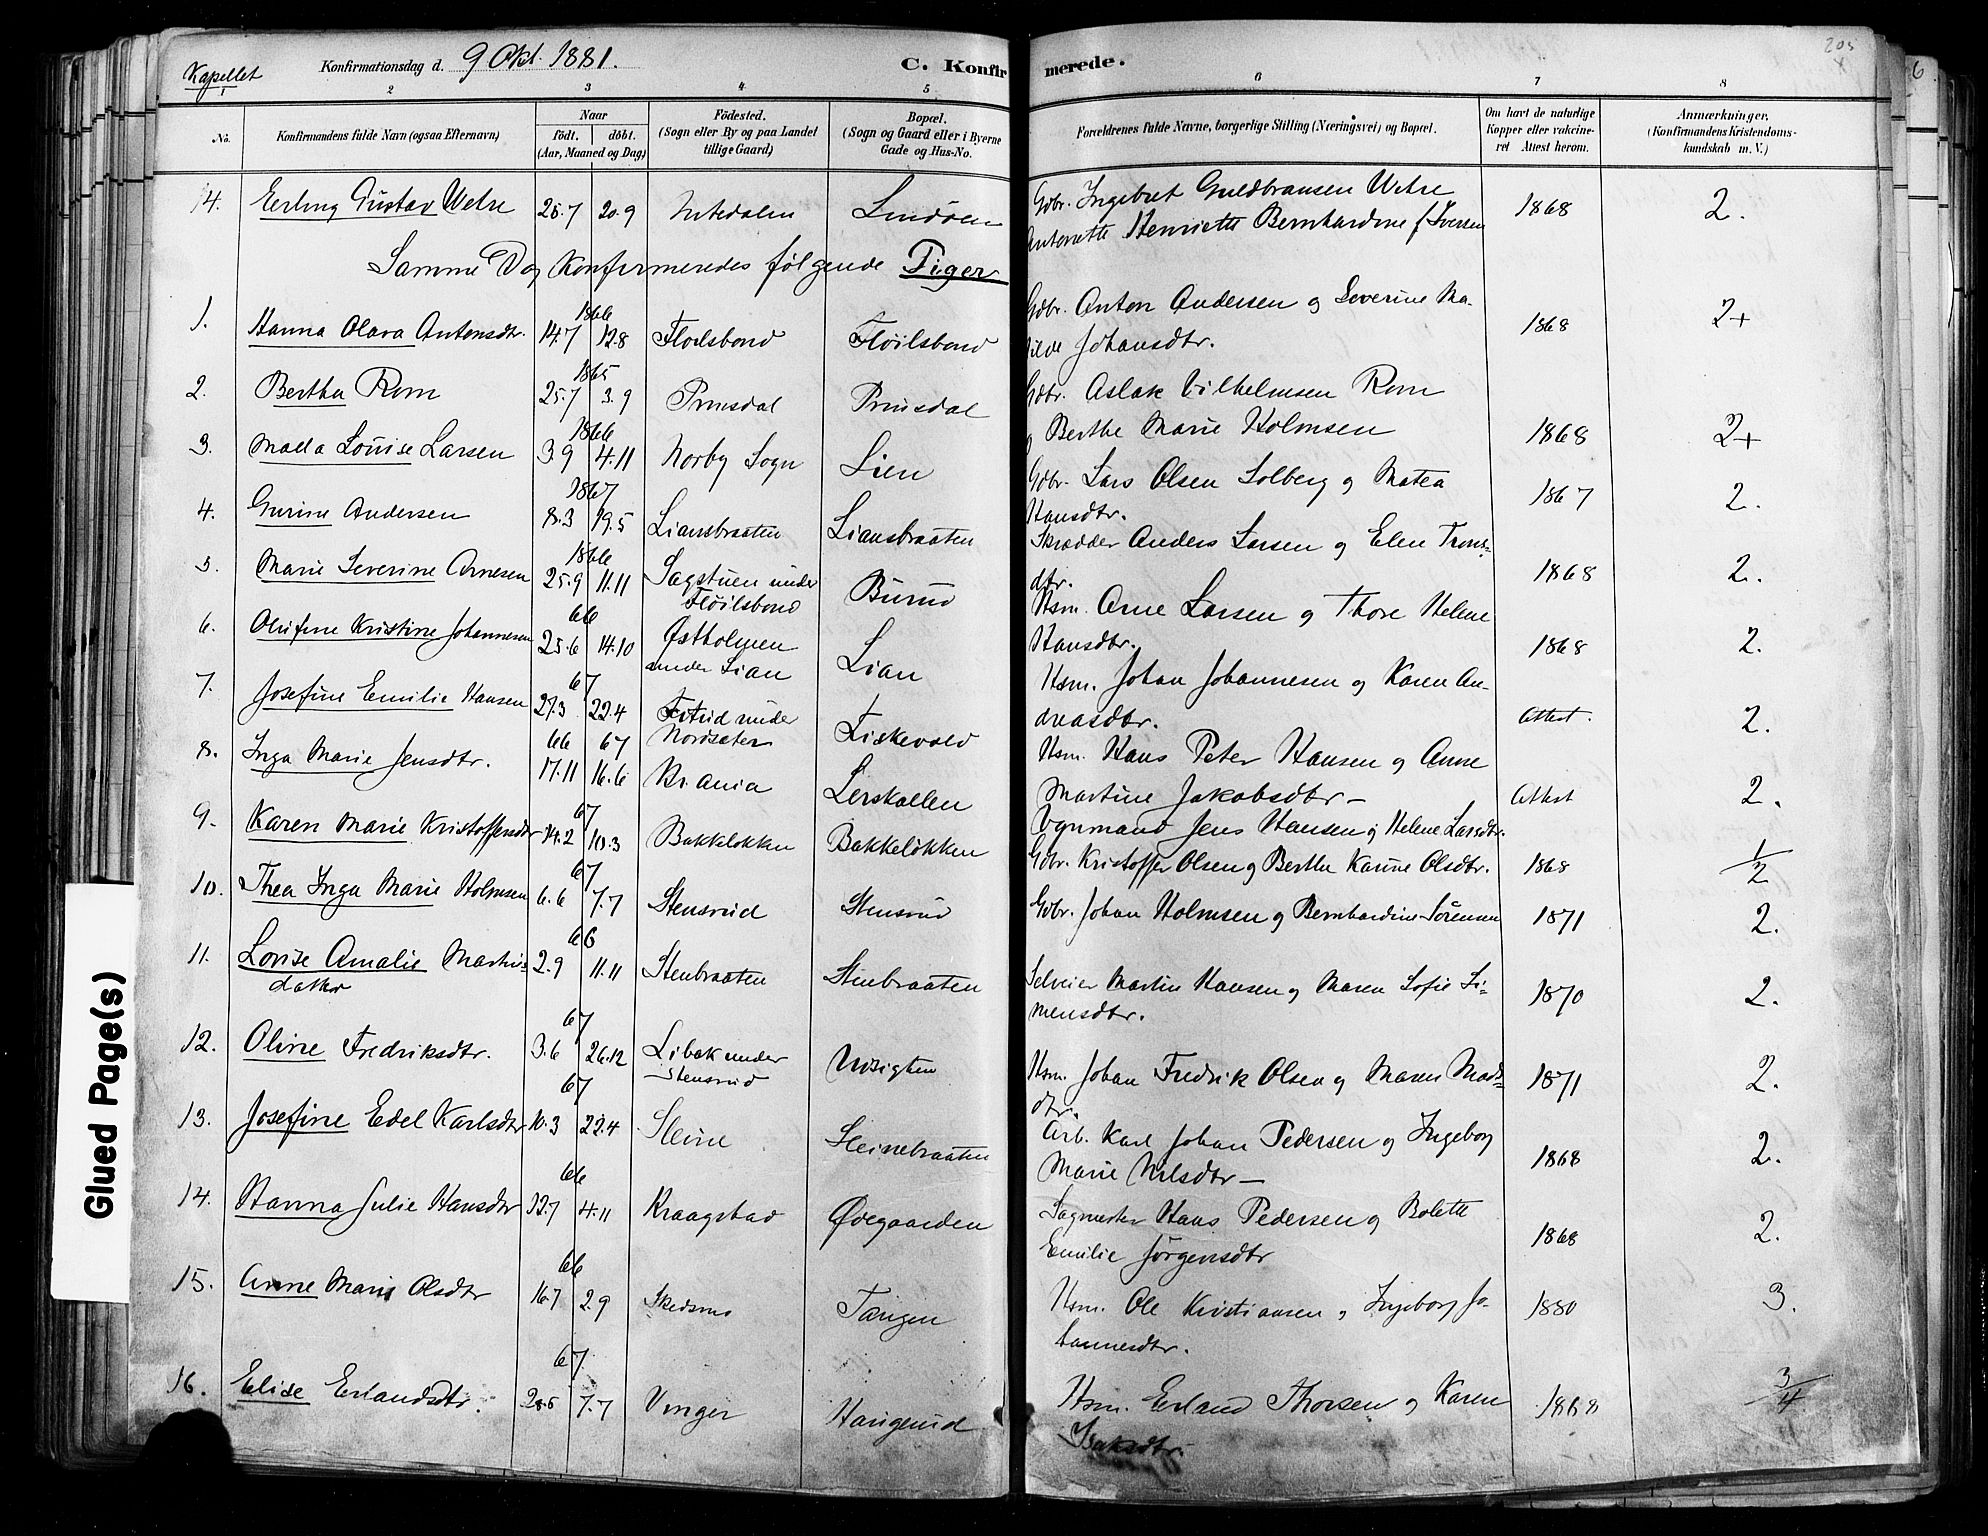 Kapellet Konfirmationsdag d. 9 Okt. 1881. C. Konfirmerede. 205
1 2 3 4 5 6 7 8
No. Konfirmandens fulde Navn (ogsaa Efternavn) Naar født. døbt. (Aar, Maaned og Dag) Fødested. (Sogn eller By og paa Landet tillige Gaard) Bopæl. (Sogn og Gaard eller i Byerne Gade og Hus-No. Forældrenes fulde Navne, borgerlige Stilling (Næringsvei) og Bopæl. Om havt de naturlige Kopper eller vaccineret Attest herom. Anmærkninger, (Konfirmandens Kristendomskundskab m. V.)
14. Erling Gustav Wetre 25.7 20.9 Nitedalen Lindøen Gdbr. Ingebret Guldbransen Wetre 1868 2.
Antonette Henriette Bernhardine f Iversen
Samme Dag Konfirmeredes følgende Piger
1. Hanna Olava Antonsdtr. 1866 14.7 12.8 Fløilsbond Fløilsbond Gdbr. Anton Andersen og Severine Ma- 1868 2+
tilde Johansdtr.
2. Bertha Rom 1865 25.7 3.9 Prinsdal Prinsdal Gdbr. Aslak Vilhelmsen Rom
og Berthe Marie Holmsen 1868 2+
3. Malla Louise Larsen 1866 3.9 4.11 Norby Sogn Lien Gdbr. Lars Olsen Solberg og Matea 1867 2.
Hansdtr.
4. Gurine Andersen 1867 8.3 19.5 Liansbraaten Liansbraaten Skrædder Anders Larsen og Elen Trons- 1868 2.
dtr.
5. Marie Severine Arnesen 1866 25.9 11.11 Sagstuen under Fløilsbond Burud Hsm. Arne Larsen og Thore Helene 1868 2.
Hansdtr.
6. Olufine Kristine Johannesen 66 25.6 14.10 Østholmen under Lian Lian Hsm. Johan Johannesen og Karen An-
dreasdtr. Attest. 2.
7. Josefine Emilie Hansen 67 27.3 22.4 under Nordseter Fiskevold Hsm. Hans Peter Hansen og Anne
Martine Jakobsdtr — Attest 2.
8. Inga Marie Jensdtr. 66 67 17.11 16.6 Kr.ania Lerskallen Vognmand Jens Hansen og Helene Larsdtr.
9. Karen Marie Kristoffersdtr 67 14.2 10.3 Bakkeløkken Bakkeløkken Gdbr. Kristoffer Olsen og Berthe Karine Olsdtr. 1868 1/2
10. Thea Inga Marie Holmsen 67 6.6 7.7 Stensrud Stensrud Gdbr. Johan Holmsen og Bernhardine Sørensen 1871 2.
11. Lovise Amalie Martins 66 2.9 11.11 Stenbraaten Stenbraaten Selveier Martin Hansen og Maren Sofie Si- 1870 2.
datter mensdtr.
12. Oline Fredriksdtr. 67 3.6 26.12 Libak under Stensrud Udsigten Hsm. Johan Fredrik Olsen og Maren Mads- 1871 2.
dtr.
13. Josefine Edel Karlsdtr 67 10.3 22.4 Sleine Sleinebraaten Arb. Karl Johan Pedersen og Ingeborg
Marie Nilsdtr — 1868 2.
14. Hanna Julie Hansdtr 66 12.7 4.11 Kraagstad Ødegaarden Sagmester Hans Pedersen og Bolette
Emilie Jørgensdtr 1868 2.
15. Anne Marie Olsdtr 66 16.7 2.9 Skedsmo Tangen Hsm. Ole Kristiansen og Ingeborg Jo- 1880 3.
hannesdtr.
16. Elise Erlandsdtr. 67 28.5 7.7 Vinger Haugerud Hsm. Erland Thorsen og Karen 1868 3/4
Isaksdtr.
Glued Page(s)